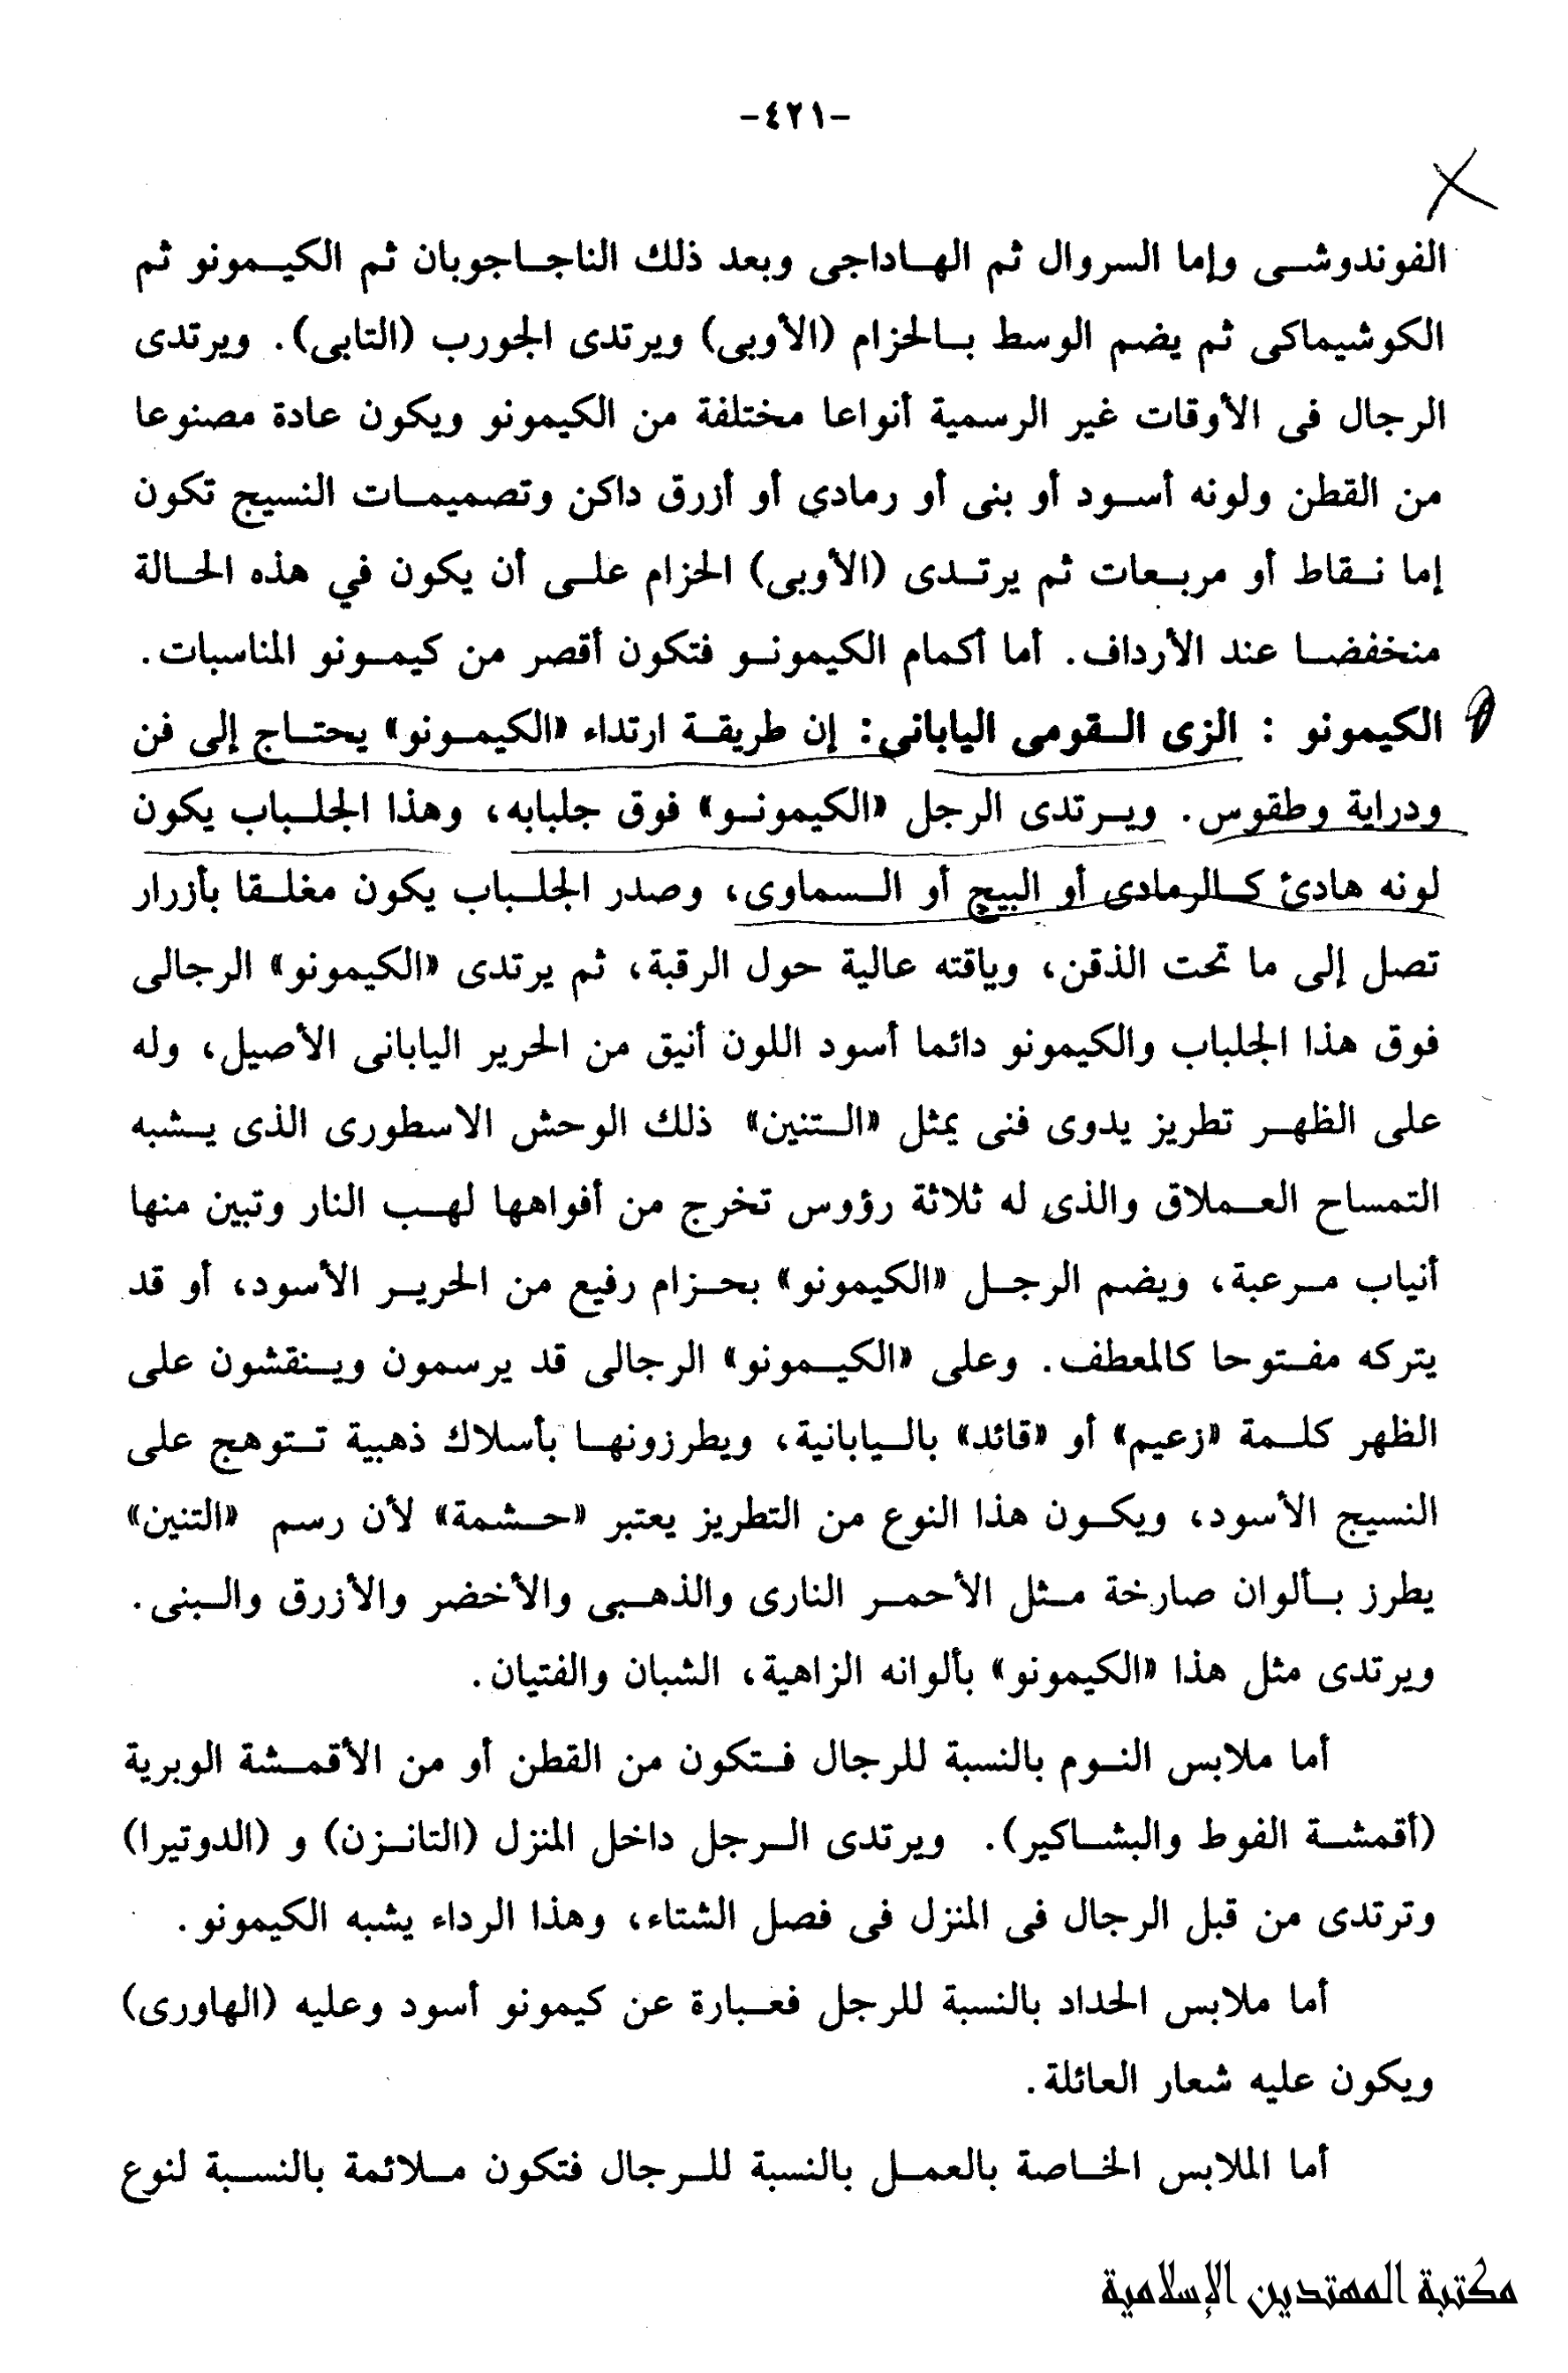 -٤٢١-
الفوندوشى وإما السروال ثم الهاداجى وبعد ذلك الناجاجوبان ثم الكيمونو ثم
الكوشيماكى ثم يضم الوسط بالحزام (الأوبى) ويرتدى الجورب (التابى). ويرتدى
الرجال فى الأوقات غير الرسمية أنواعا مختلفة من الكيمونو ويكون عادة مصنوعا
من القطن ولونه أسود أو بنى أو رمادي أو أزرق داكن وتصميمات النسيج تكون
إما نقاط أو مربعات ثم يرتدى (الأوبى) الحزام على أن يكون في هذه الحالة
منخفضا عند الأرداف. أما أكمام الكيمونو فتكون أقصر من كيمونو المناسبات.
الكيمونو : الزى القومى اليابانى: إن طريقة ارتداء «الكيمونو» يحتاج إلى فن
ودراية وطقوس. ويرتدى الرجل «الكيمونو» فوق جلبابه، وهذا الجلباب يكون
لونه هادئ كالرمادى أو البيج أو السماوى، وصدر الجلباب يكون مغلقا بأزرار
تصل إلى ما تحت الذقن، وياقته عالية حول الرقبة، ثم يرتدى «الكيمونو» الرجالى
فوق هذا الجلباب والكيمونو دائما أسود اللون أنيق من الحرير اليابانى الأصيل، وله
على الظهر تطريز يدوى فنى يمثل «التنين» ذلك الوحش الاسطورى الذى يشبه
التمساح العملاق والذى له ثلاثة رؤوس تخرج من أفواهها لهب النار وتبين منها
أنياب مرعبة، ويضم الرجل «الكيمونو» بحزام رفيع من الحرير الأسود، أو قد
يتركه مفتوحا كالمعطف. وعلى «الكيمونو» الرجالى قد يرسمون وينقشون على
الظهر كلمة «زعيم» أو «قائد» باليابانية، ويطرزونها بأسلاك ذهبية تتوهج على
النسيج الأسود، ويكون هذا النوع من التطريز يعتبر «حشمة» لأن رسم «التنين»
يطرز بألوان صارخة مثل الأحمر النارى والذهبى والأخضر والأزرق والبنى.
ويرتدى مثل هذا «الكيمونو» بألوانه الزاهية، الشبان والفتيان.
أما ملابس النوم بالنسبة للرجال فتكون من القطن أو من الأقمشة الوبرية
(أقمشة الفوط والبشاكير). ويرتدى الرجل داخل المنزل (التانزن) و (الدوتيرا)
وترتدى من قبل الرجال فى المنزل فى فصل الشتاء، وهذا الرداء يشبه الكيمونو.
أما ملابس الحداد بالنسبة للرجل فعبارة عن كيمونو أسود وعليه (الهاورى)
ويكون عليه شعار العائلة.
أما الملابس الخاصة بالعمل بالنسبة للرجال فتكون ملائمة بالنسبة لنوع
مكتبة المهتدين الإسلامية